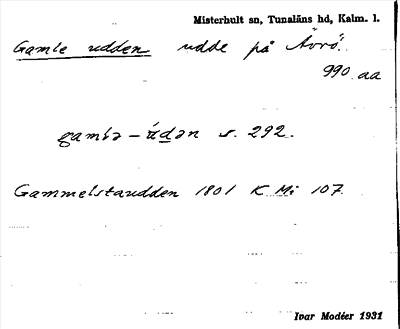 Misterhult sn, Tunaläns hd, Kalm. l.
Gamle udden udde på Ävrö.
990 aa
gamlə-údən s. 292.
Gammelstaudden 1801 K Mi 107.
Ivar Modéer 1931